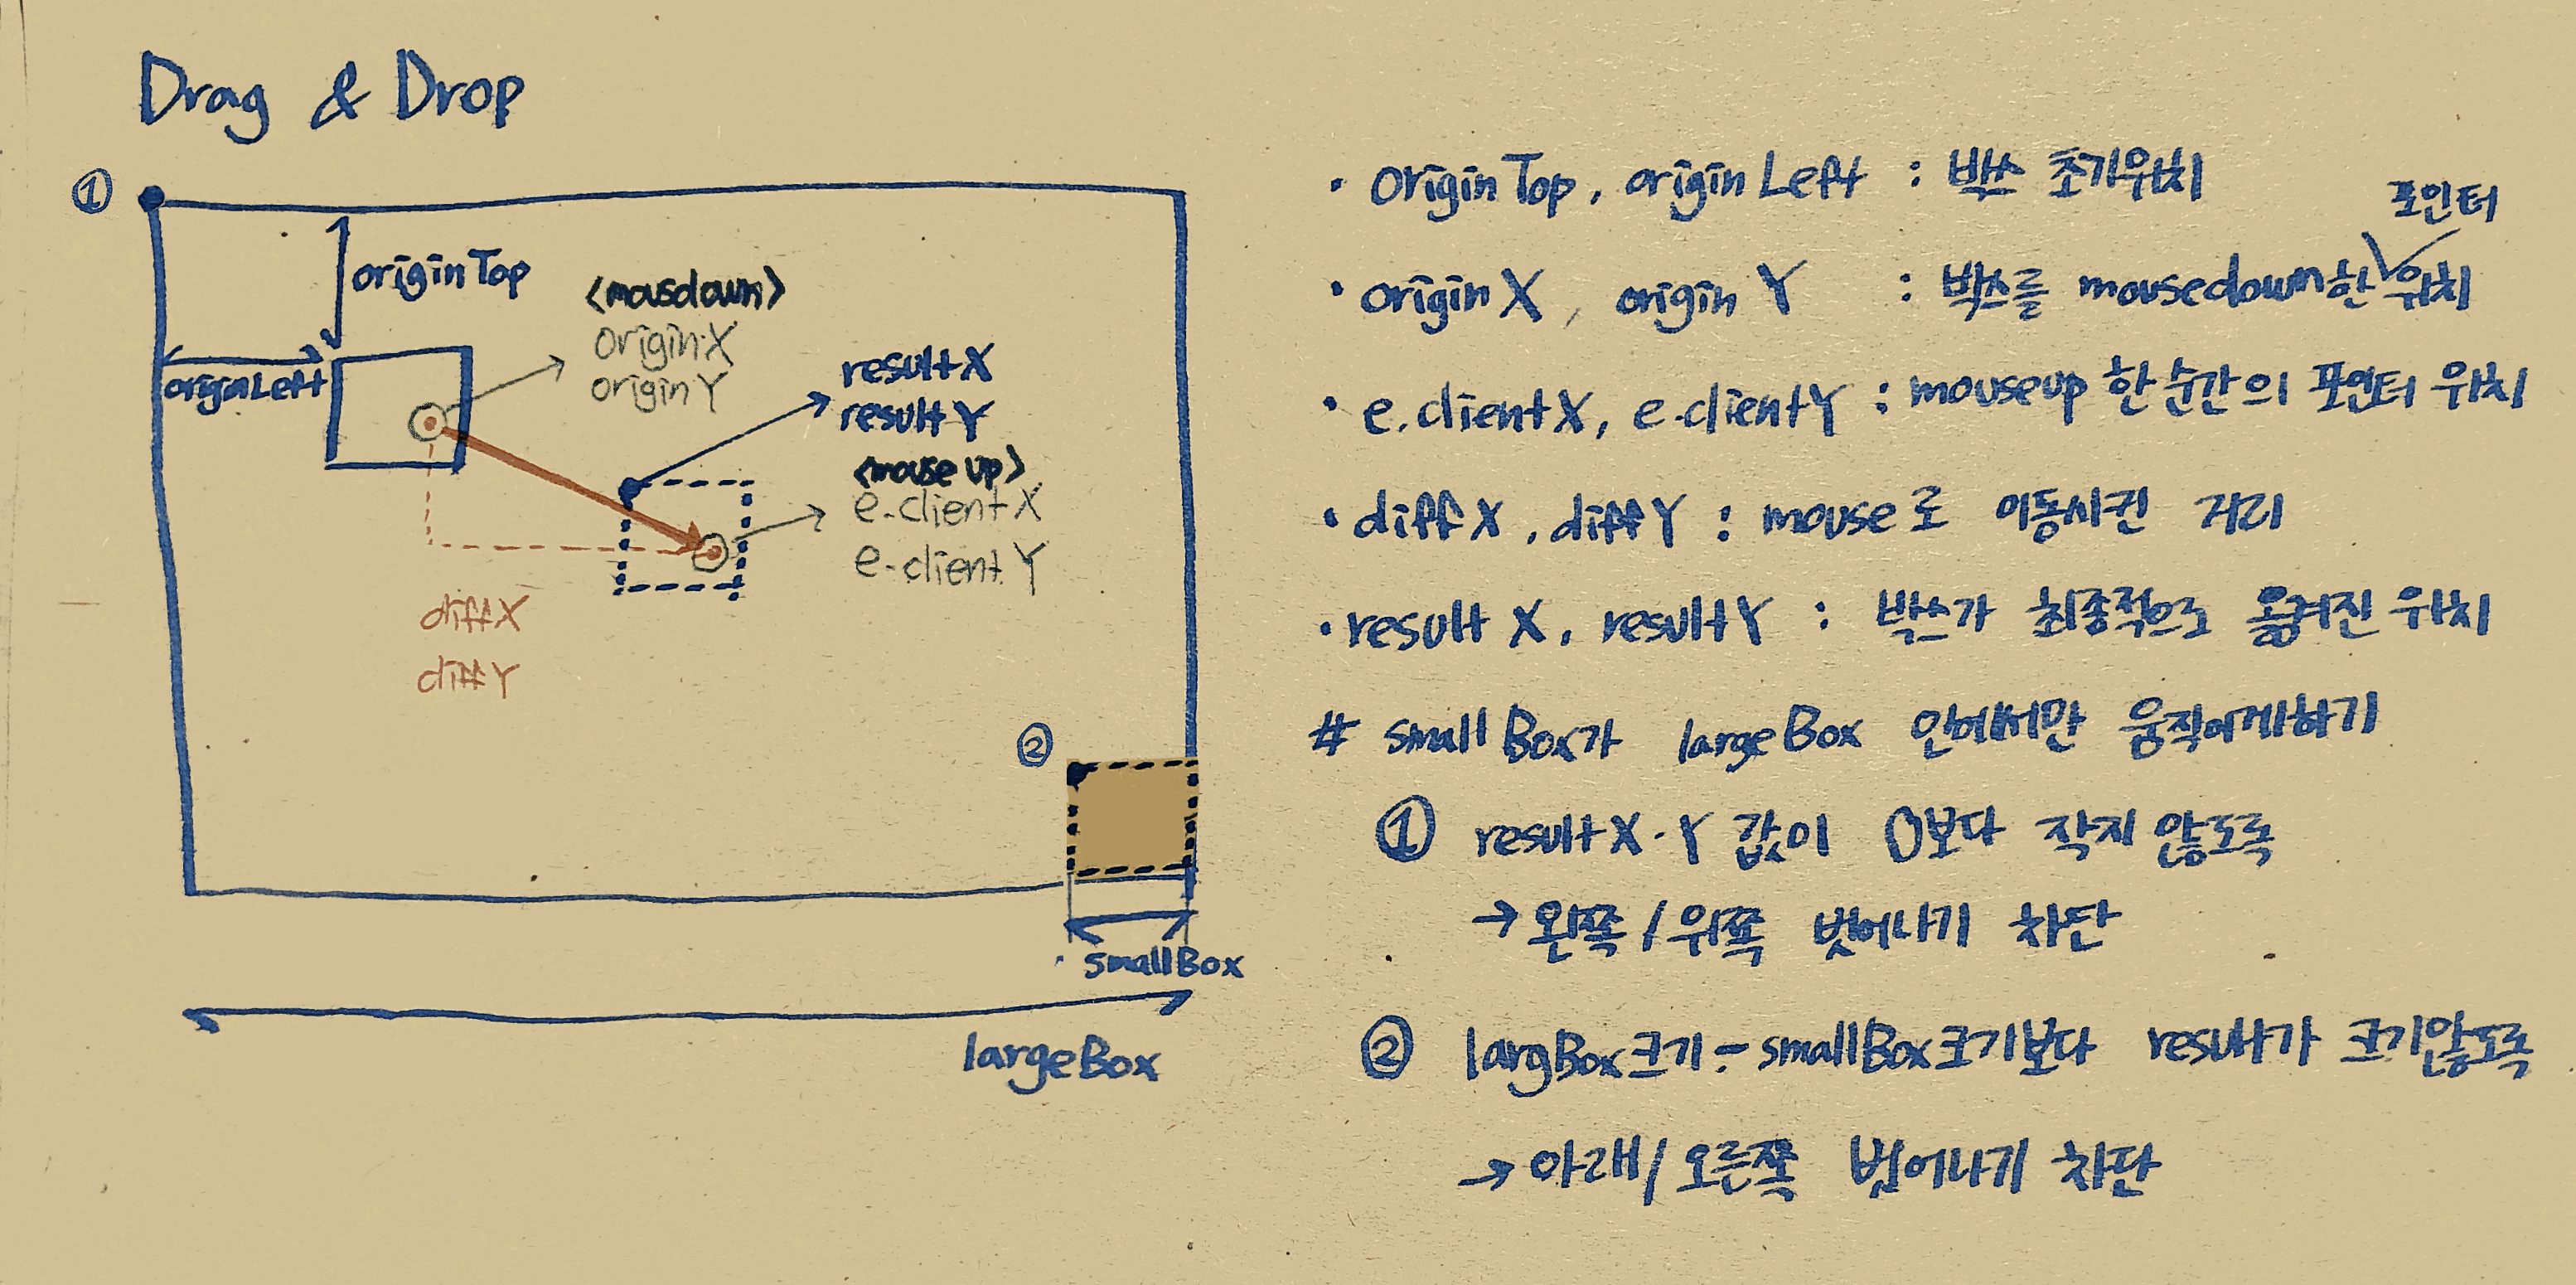 Drag & Drop
①
originTop
originLeft
<mousdown>
originX
originY
resultX
resultY
<mouse up>
e.clientX
e.clientY
diffX
diffY
②
smallBox
largeBox
• originTop, originLeft : 박스 초기위치
포인터
• originX, originY : 박스를 mousedown한 ✓위치
• e.clientX, e.clientY : mouseup 한 순간의 포인터 위치
• diffX, diffY : mouse로 이동시킨 거리
• resultX, resultY : 박스가 최종적으로 옮겨진 위치
# smallBox가 largeBox 안에서만 움직이게하기
① resultX·Y 값이 0보다 작지 않도록
→ 왼쪽 / 위쪽 벗어나기 차단
② largBox크기 - smallBox크기보다 result가 크기않도록
→ 아래 / 오른쪽 벗어나기 차단